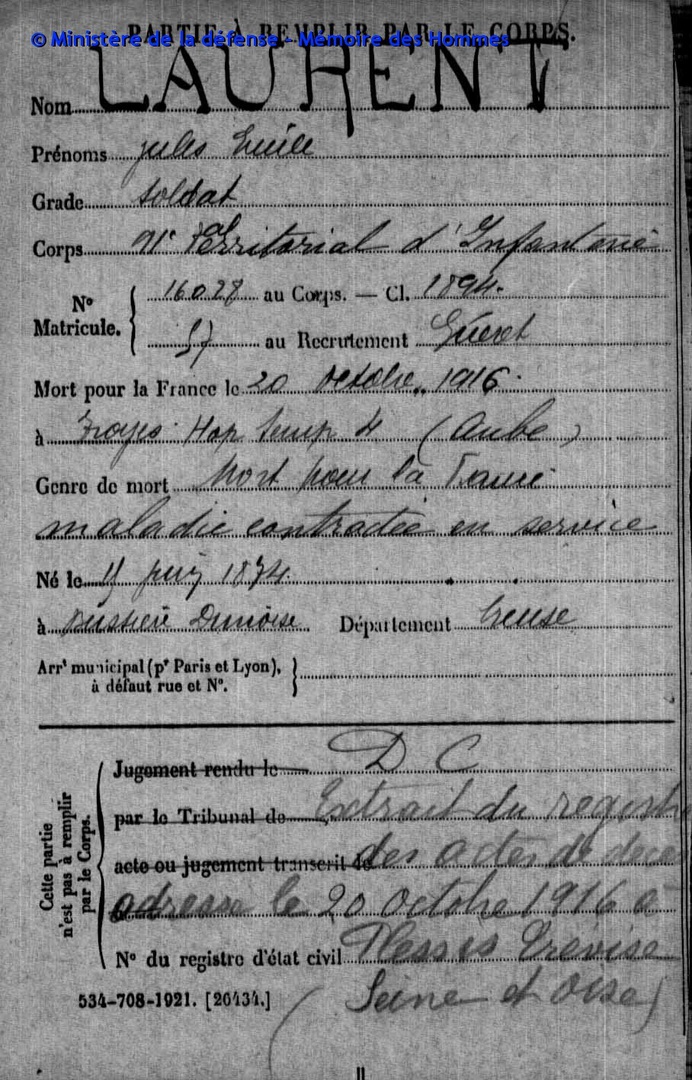 PARTIE À REMPLIR PAR LE CORPS.
© Ministère de la défense - Mémoire des Hommes
Nom LAURENT
Prénoms Jules Emile
Grade Soldat
Corps 91e Territorial d'Infanterie
N° Matricule. 16027 au Corps. — Cl. 1894.
57 au Recrutement Guéret
Mort pour la France le 20 octobre 1916.
à Troyes Hop temp 4 (Aube)
Genre de mort Mort pour la
maladie contractée en service
Né le 1874.
à Bussière Dunoise Département Creuse
Arrt municipal (pr Paris et Lyon),
à défaut rue et N°.
Cette partie
n'est pas à remplir
par le Corps.
Jugement rendu le D C
par le Tribunal de Extrait du registre
acte ou jugement transcrit le des actes de décès
adressé le 20 octobre 1916 à
N° du registre d'état civil Plessis Trévise
534-708-1921. [26434.]
(Seine et Oise)